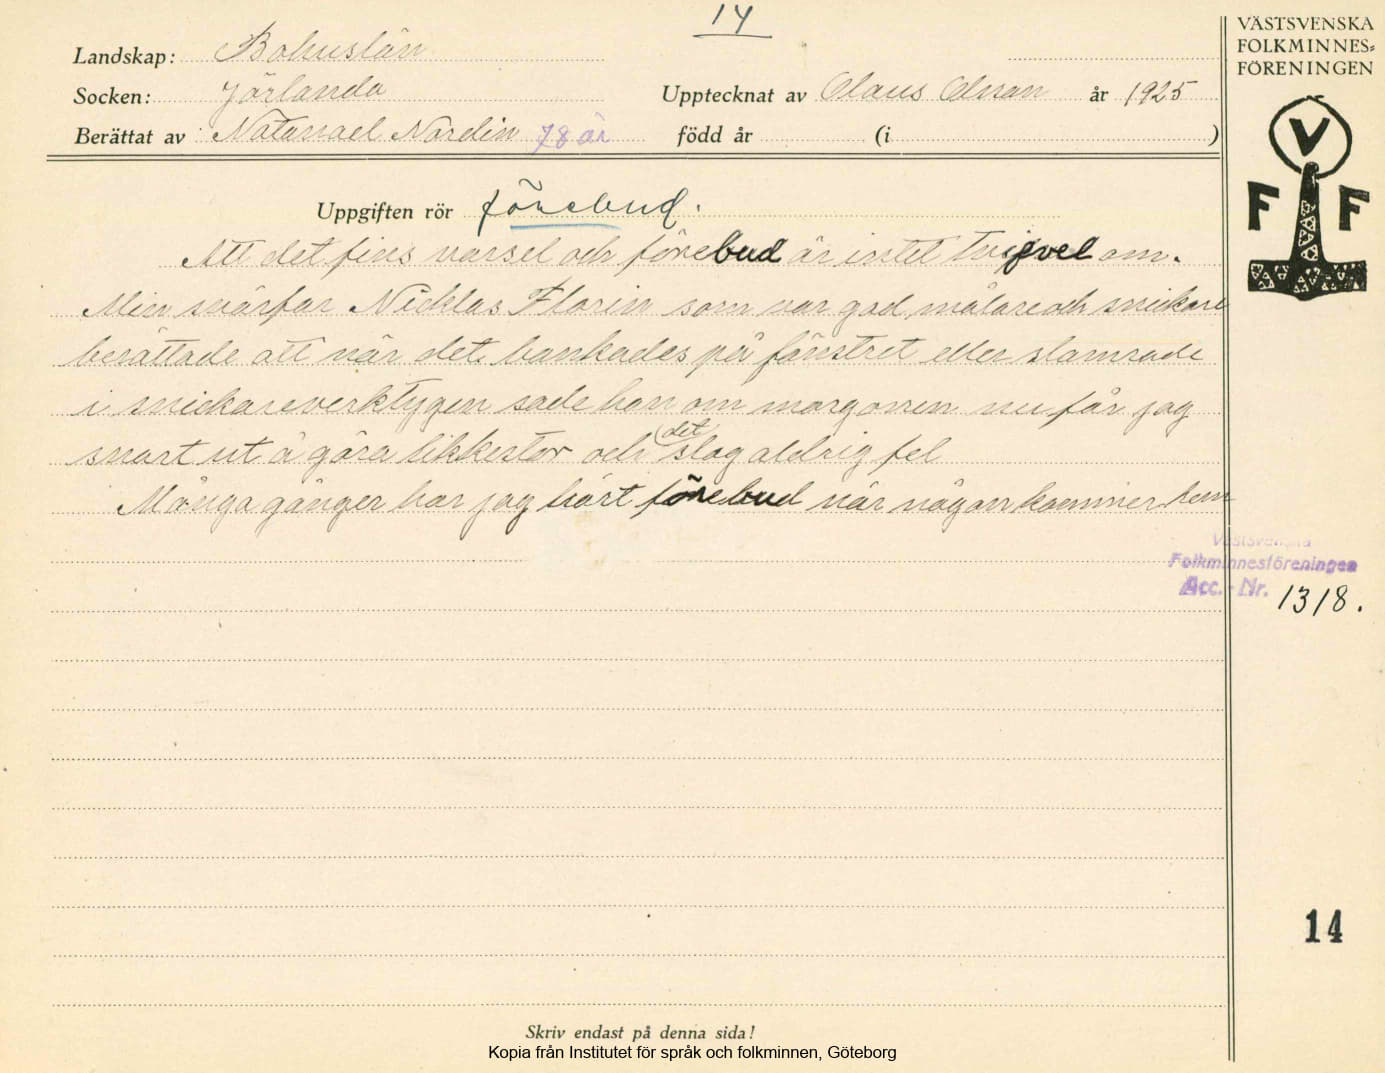 14
VÄSTSVENSKA
FOLKMINNES=
FÖRENINGEN
Landskap: Bohuslän
Socken: Jörlanda
Upptecknat av Olaus Olsson år 1925
Berättat av Natanael Nordin 78 år född år (i )
V
F F
Uppgiften rör förebud.
Att det fins varsel och förebud är intet tvifvel om.
Min svärfar Nicklas Florin som var god målare och snickare
berättade att när det bankades på fönstret eller slamrade
i snickareverktygen sade han om morgonen nu får jag
snart ut å göra likkistor och det slog aldrig fel
Många gånger har jag hört förebud när någon kommer hem
Västsvenska
Folkminnesföreningen
Acc. - Nr. 1318.
14
Skriv endast på denna sida!
Kopia från Institutet för språk och folkminnen, Göteborg